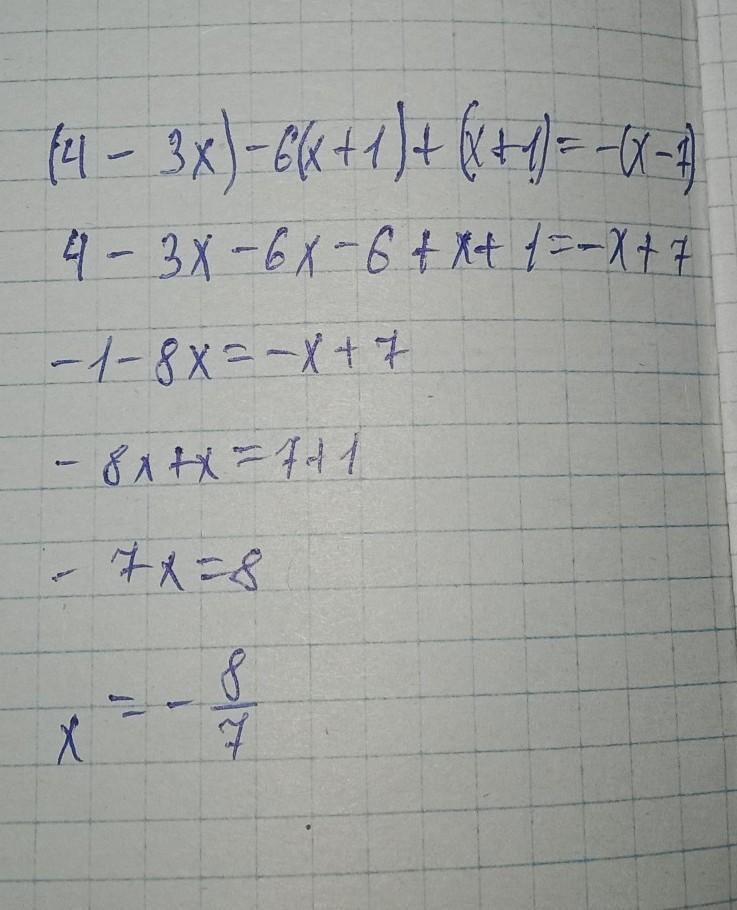 (4 - 3x) - 6(x + 1) + (x + 1) = -(x - 7)
4 - 3x - 6x - 6 + x + 1 = -x + 7
-1 - 8x = -x + 7
- 8x + x = 7 + 1
- 7x = 8
x = - 8/7